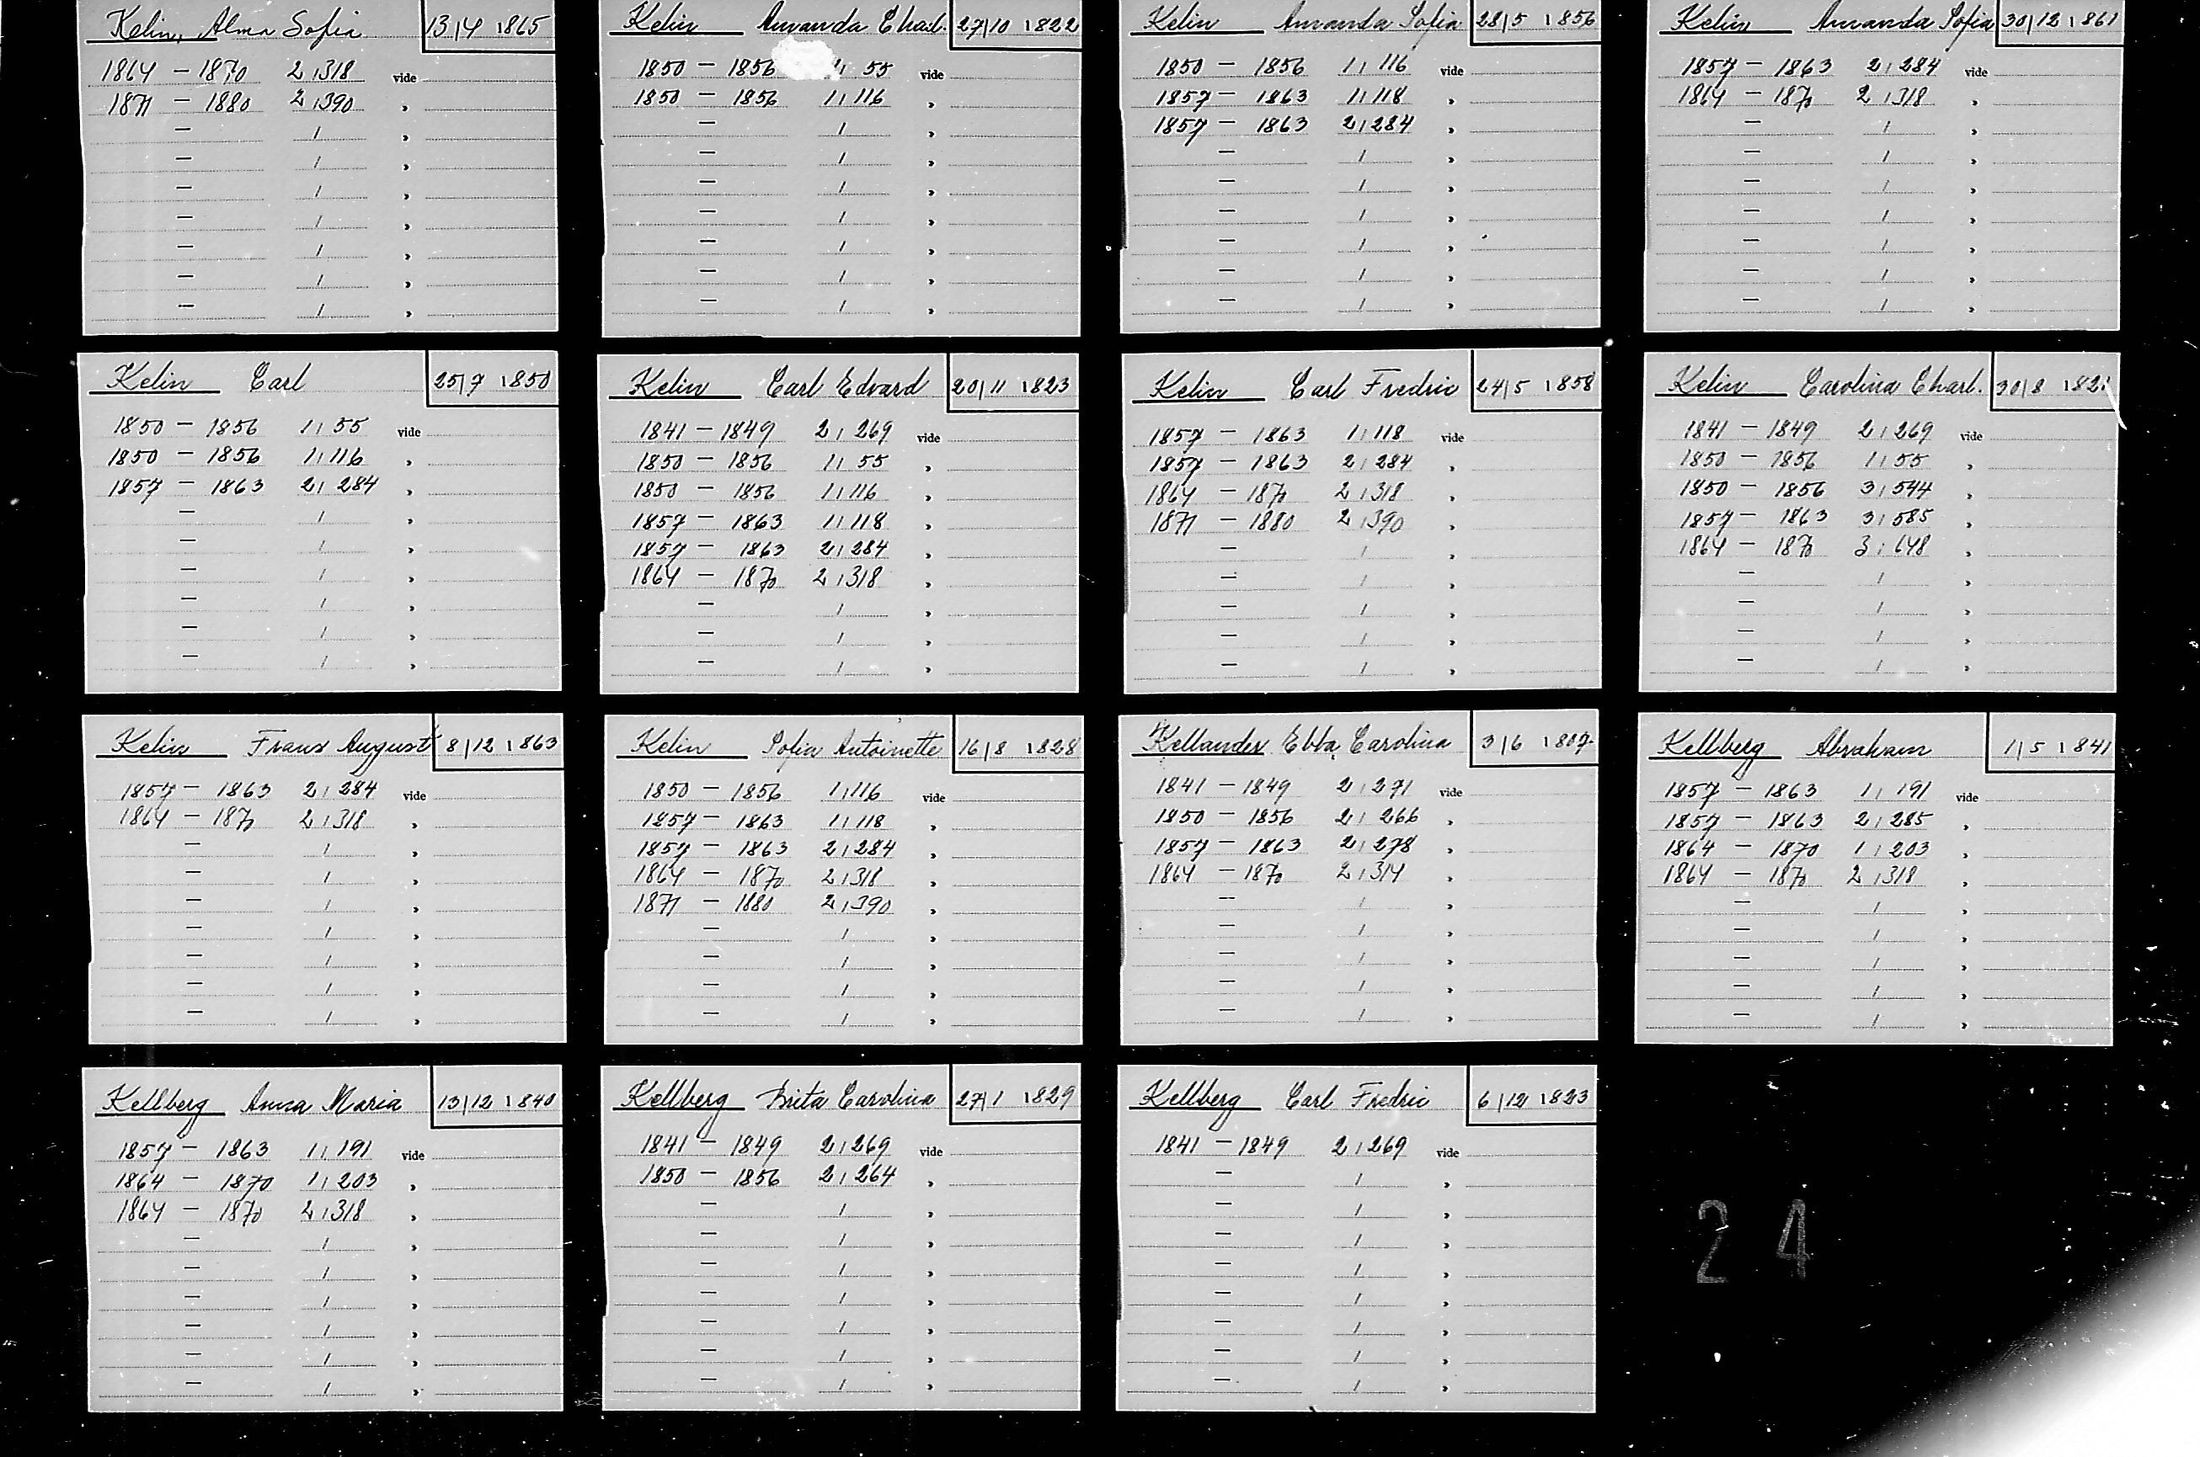 Kelin, Alma Sofia 13/4 1865
1864 — 1870 2, 318 vide
1871 — 1880 2, 390 "
Kelin Amanda Charl. 27/10 1822
1850 — 1856 1, 55 vide
1850 — 1856 1, 116 "
Kelin Amanda Sofia 28/5 1856
1850 — 1856 1, 116 vide
1857 — 1863 1, 118 "
1857 — 1863 2, 284 "
Kelin Amanda Sofia 30/12 1861
1857 — 1863 2, 284 vide
1864 — 1870 2, 318 "
Kelin Carl 25/7 1850
1850 — 1856 1, 55 vide
1850 — 1856 1, 116 "
1857 — 1863 2, 284 "
Kelin Carl Edvard 20/11 1823
1841 — 1849 2, 269 vide
1850 — 1856 1, 55 "
1850 — 1856 1, 116 "
1857 — 1863 1, 118 "
1857 — 1863 2, 284 "
1864 — 1870 2, 318 "
Kelin Carl Fredric 24/5 1858
1857 — 1863 1, 118 vide
1857 — 1863 2, 284 "
1864 — 1870 2, 318 "
1871 — 1880 2, 390 "
Kelin Carolina Charl. 30/8
1841 — 1849 2, 269 vide
1850 — 1856 1, 55 "
1850 — 1856 3, 544 "
1857 — 1863 3, 585 "
1864 — 1870 3, 648 "
Kelin Frans August 8/12 1863
1857 — 1863 2, 284 vide
1864 — 1870 2, 318 "
Kelin Sofia Antoinette 16/8 1828
1850 — 1856 1, 116 vide
1857 — 1863 1, 118 "
1857 — 1863 2, 284 "
1864 — 1870 2, 318 "
1871 — 1880 2, 390 "
Kellander Ebba Carolina 3/6 1807
1841 — 1849 2, 271 vide
1850 — 1856 2, 266 "
1857 — 1863 2, 278 "
1864 — 1870 2, 314 "
Kellberg Abraham 1/5 1841
1857 — 1863 1, 191 vide
1857 — 1863 2, 285 "
1864 — 1870 1, 203 "
1864 — 1870 2, 318 "
Kellberg Anna Maria 13/12 1840
1857 — 1863 1, 191 vide
1864 — 1870 1, 203 "
1864 — 1870 2, 318 "
Kellberg Brita Carolina 27/1 1829
1841 — 1849 2, 269 vide
1850 — 1856 2, 264 "
Kellberg Carl Fredric 6/12 1823
1841 — 1849 2, 269 vide
24